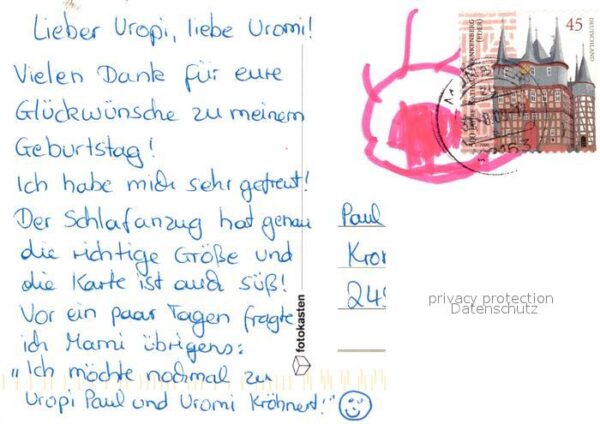 Lieber Uropi, liebe Uromi!
Vielen Dank für eure
Glückwünsche zu meinem
Geburtstag!
Ich habe mich sehr gefreut!
Der Schlafanzug hat genau
die richtige Größe und
die Karte ist auch süß!
Vor ein paar Tagen fragte
ich Mami übrigens:
"Ich möchte nochmal zu
Uropi Paul und Uromi Kröhnert!"
fotokasten
45
DEUTSCHLAND
FRANKENBERG
(EDER)
Paul
privacy protection
Datenschutz